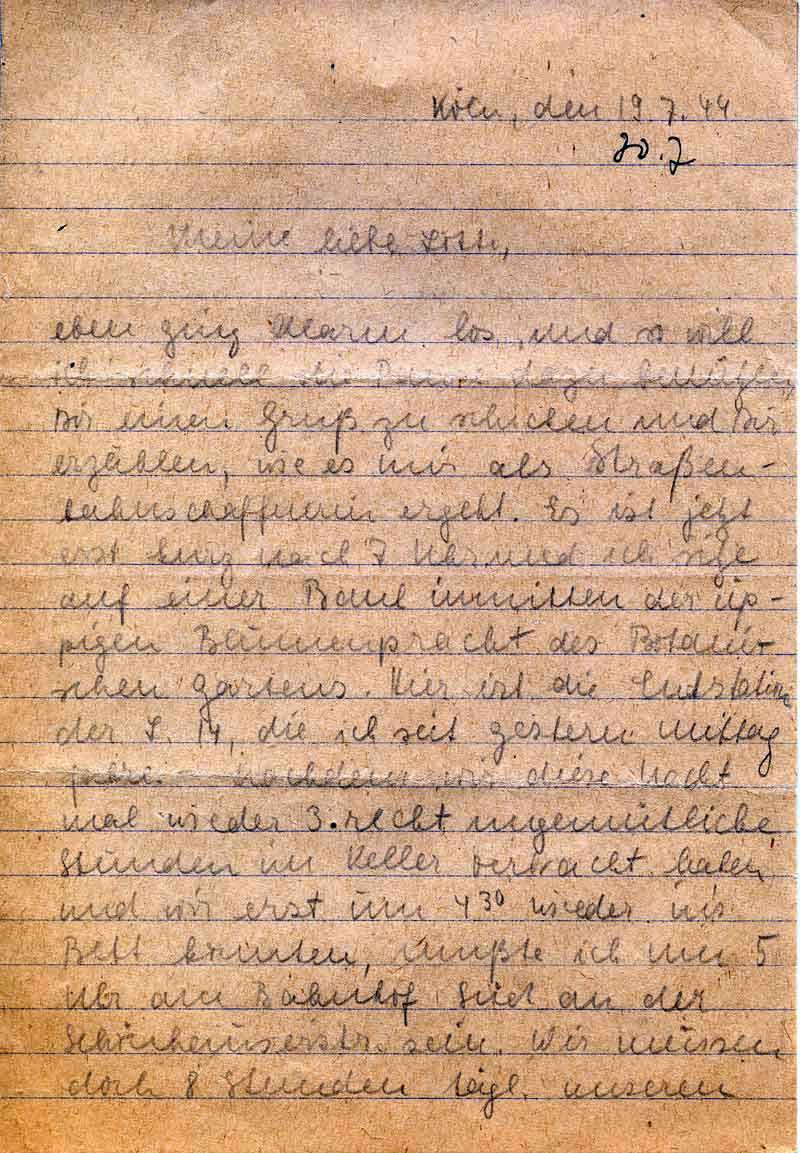 Köln, den 19.7.44
20.7
Meine liebe Lotte,
eben ging Alarm los, und so will
ich schnell die Pause dazu benützen,
Dir einen Gruß zu schicken und Dir
erzählen, wie es mir als Straßen-
bahnschaffnerin ergeht. Es ist jetzt
erst kurz nach 7 Uhr und ich sitze
auf einer Bank inmitten der üp-
pigen Blumenpracht des Botani-
schen Gartens. Hier ist die Endstation
der L. 14, die ich seit gestern Mittag
fahre. Nachdem wir diese Nacht
mal wieder 3 recht ungemütliche
Stunden im Keller verbracht haben
und wir erst um 4 30 wieder ins
Bett konnten, mußte ich um 5
Uhr am Bahnhof Süd an der
sein. Wir müssen
doch 8 Stunden tägl. unseren